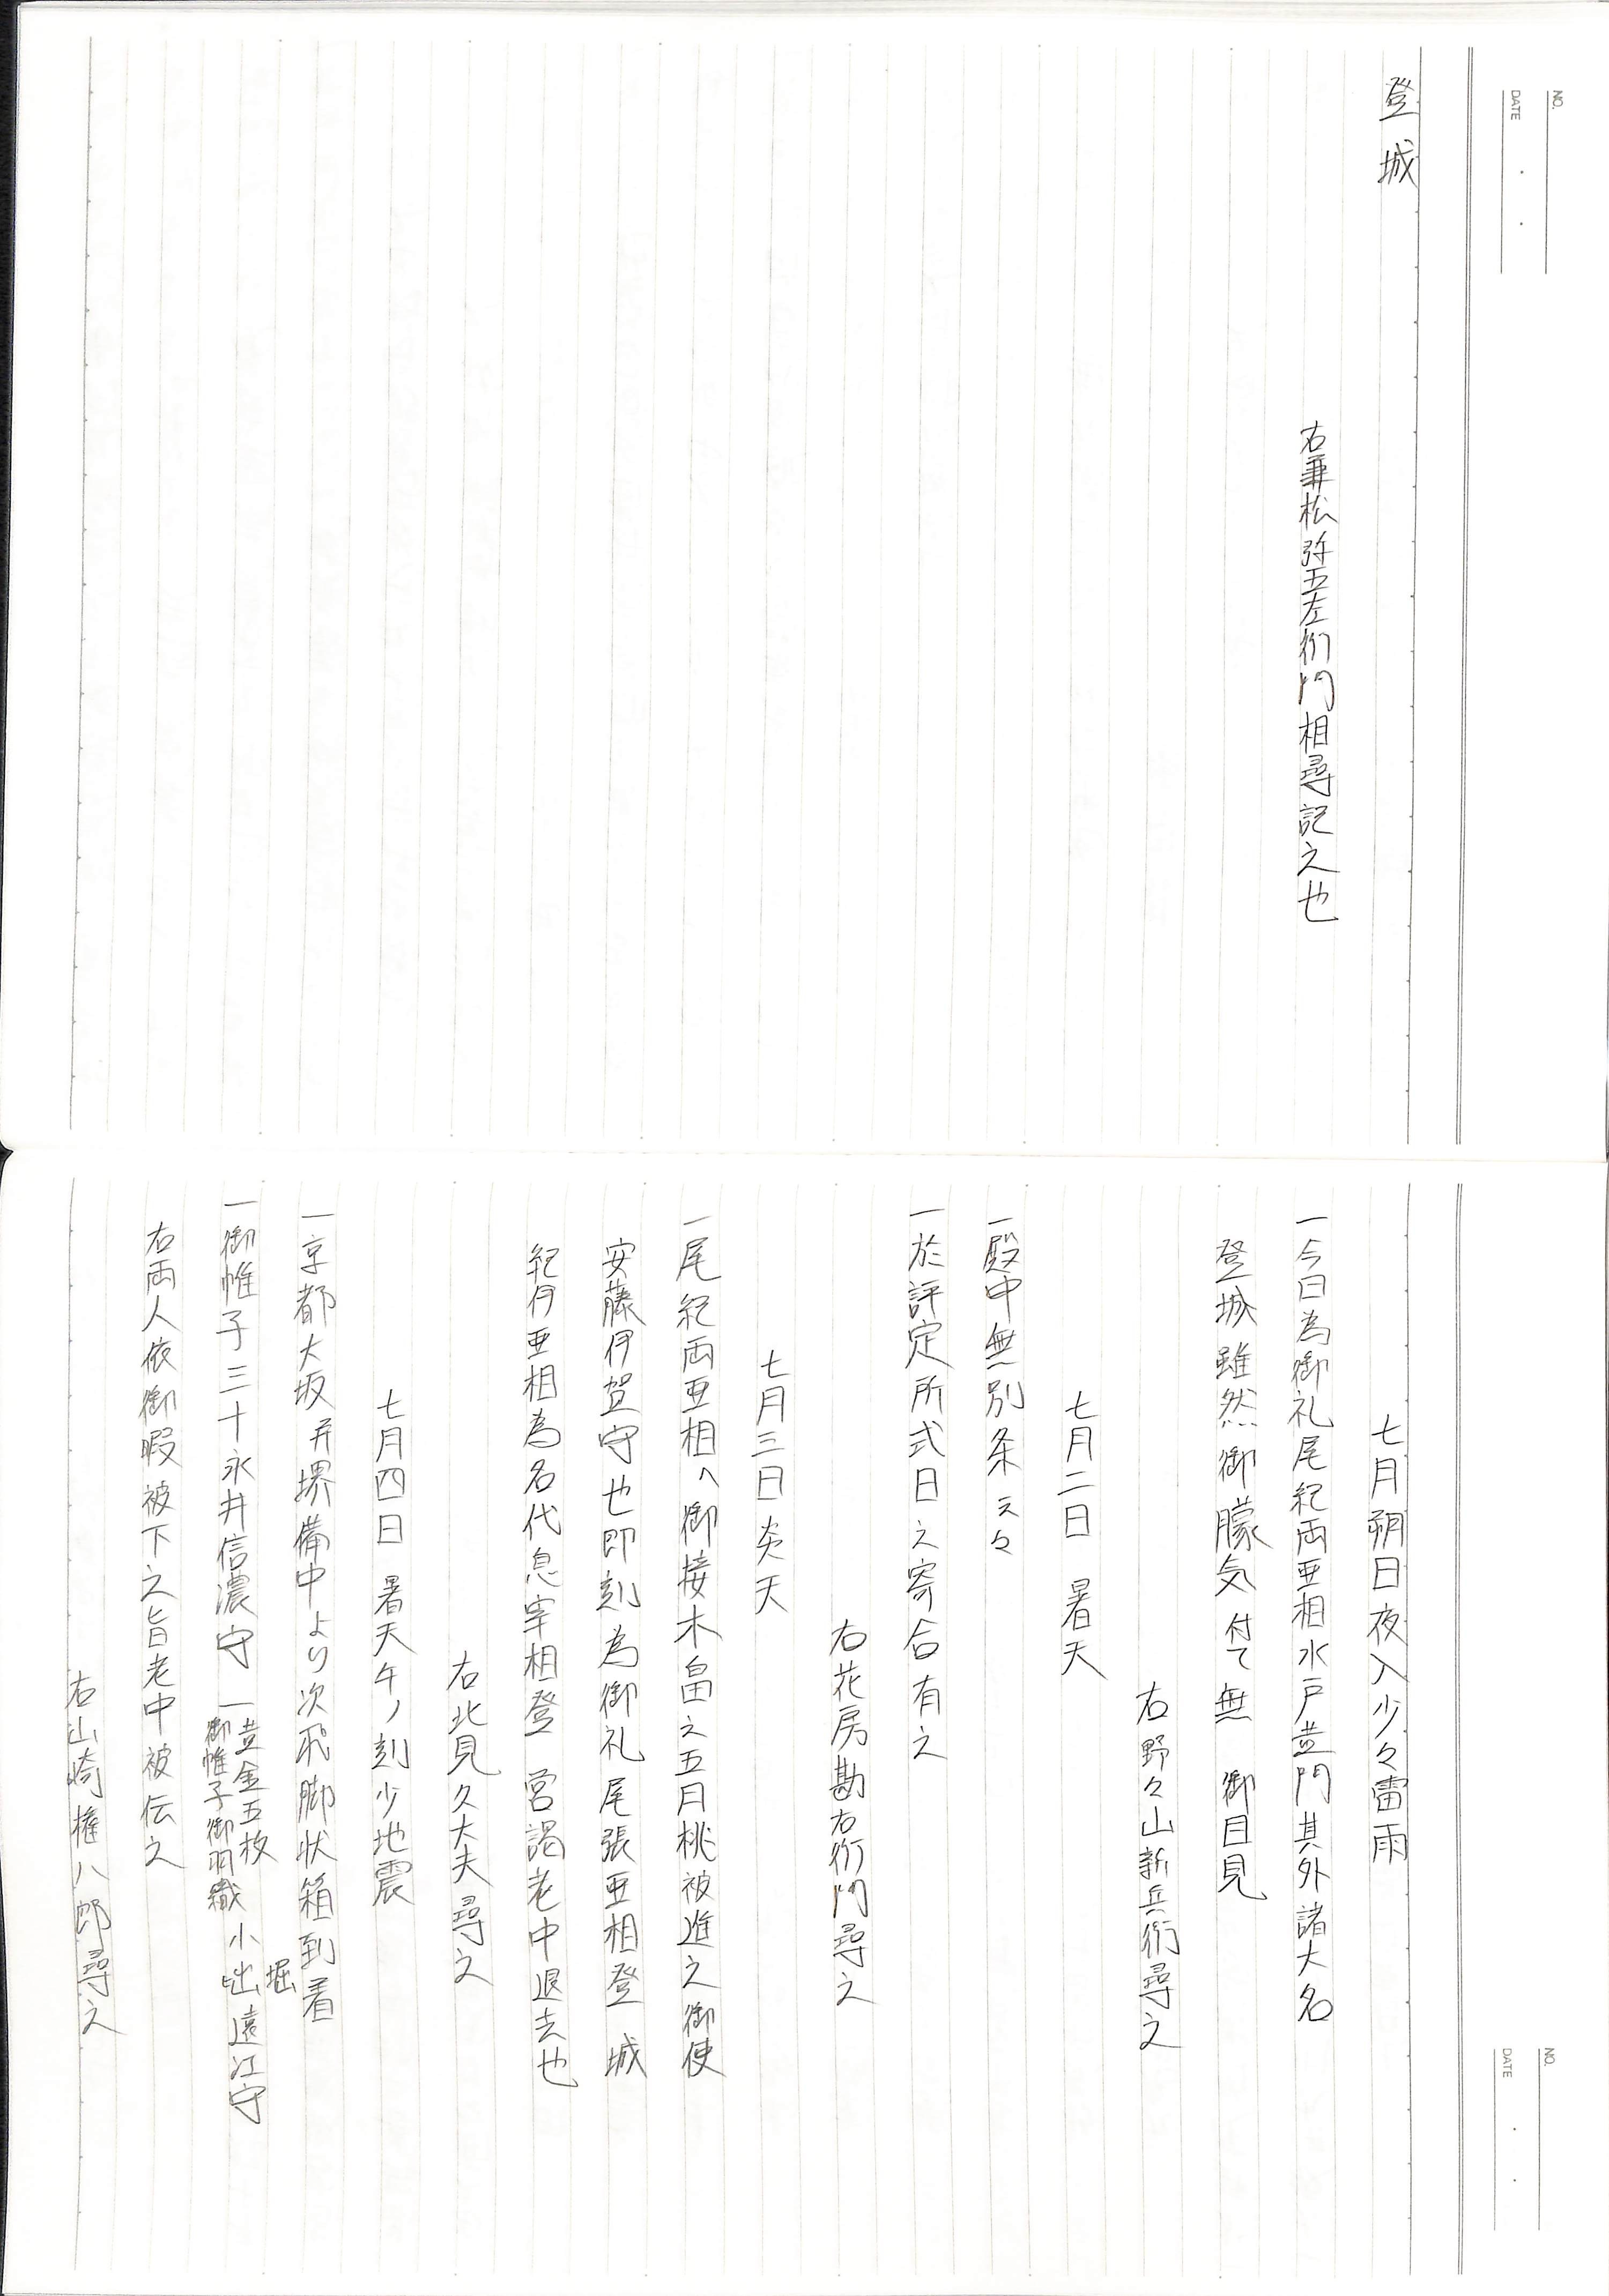 NO.
DATE
登城
右兼松弥五左衛門相尋記之也
NO.
DATE
七月朔日夜入少々雷雨
一今日為御礼尾紀両亜相水戸並門其外諸大名
登城雖然御朦気付て無 御目見
右野々山新兵衛尋之
七月二日 暑天
一殿中無別条云々
一於評定所式日之寄合有之
右花房勘右衛門尋之
七月三日炎天
一尾紀両亜相へ御接木畠之五月桃被進之御使
安藤伊賀守也即刻為御礼尾張亜相登 城
紀伊亜相為名代息宰相登 営謁老中退去也
右北見久大夫尋之
七月四日 暑天午ノ刻少地震
一京都大坂并堺備中より次飛脚状箱到着
一御帷子三十永井信濃守 一黄金五枚
御帷子御羽織 小堀遠江守
右両人依御暇被下之旨老中被伝之
右山崎権八郎尋之